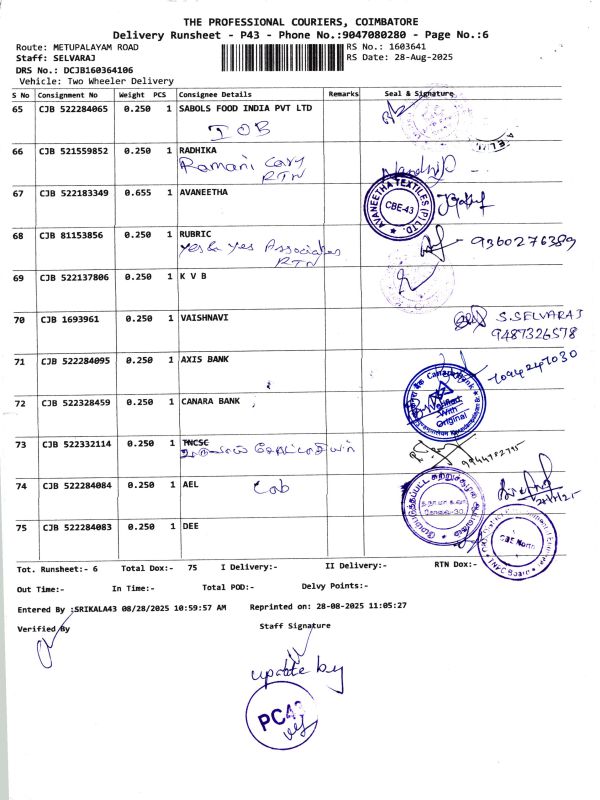 THE PROFESSIONAL COURIERS, COIMBATORE
Delivery Runsheet - P43 - Phone No.:9047080280 - Page No.:6
Route: METUPALAYAM ROAD RS No.: 1603641
Staff: SELVARAJ RS Date: 28-Aug-2025
DRS No.: DCJB160364106
Vehicle: Two Wheeler Delivery
S No Consignment No Weight PCS Consignee Details Remarks Seal & Signature
65 CJB 522284065 0.250 1 SABOLS FOOD INDIA PVT LTD
IOB
66 CJB 521559852 0.250 1 RADHIKA
Ramani Cary
RTN
67 CJB 522183349 0.655 1 AVANEETHA
AVANEETHA TEXTILES (P) LTD.
CBE-43
68 CJB 81153856 0.250 1 RUBRIC
Yes & Yes Associates
RTN
9360276389
69 CJB 522137806 0.250 1 K V B
70 CJB 1693961 0.250 1 VAISHNAVI
S.SELVARAJ
9487326578
71 CJB 522284095 0.250 1 AXIS BANK
7094247030
72 CJB 522328459 0.250 1 CANARA BANK
Canara Bank
Verified
With
Original
73 CJB 522332114 0.250 1 TNCSC
9944782795
74 CJB 522284084 0.250 1 AEL
Lab
75 CJB 522284083 0.250 1 DEE
CBE North
TNPC Board
Tot. Runsheet:- 6 Total Dox:- 75 I Delivery:- II Delivery:- RTN Dox:-
Out Time:- In Time:- Total POD:- Delvy Points:-
Entered By :SRIKALA43 08/28/2025 10:59:57 AM Reprinted on: 28-08-2025 11:05:27
Verified By Staff Signature
update by
PC43